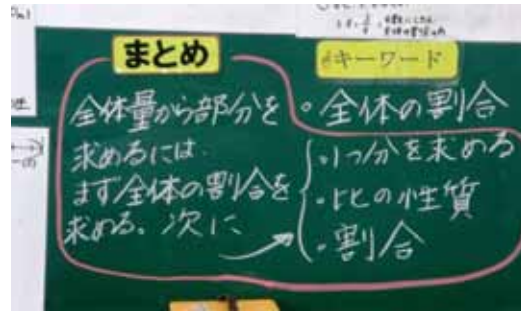 まとめ
全体量から部分を
求めるには、
まず全体の割合を
求める。次に
キーワード
・全体の割合
・1つ分を求める
・比の性質
・割合